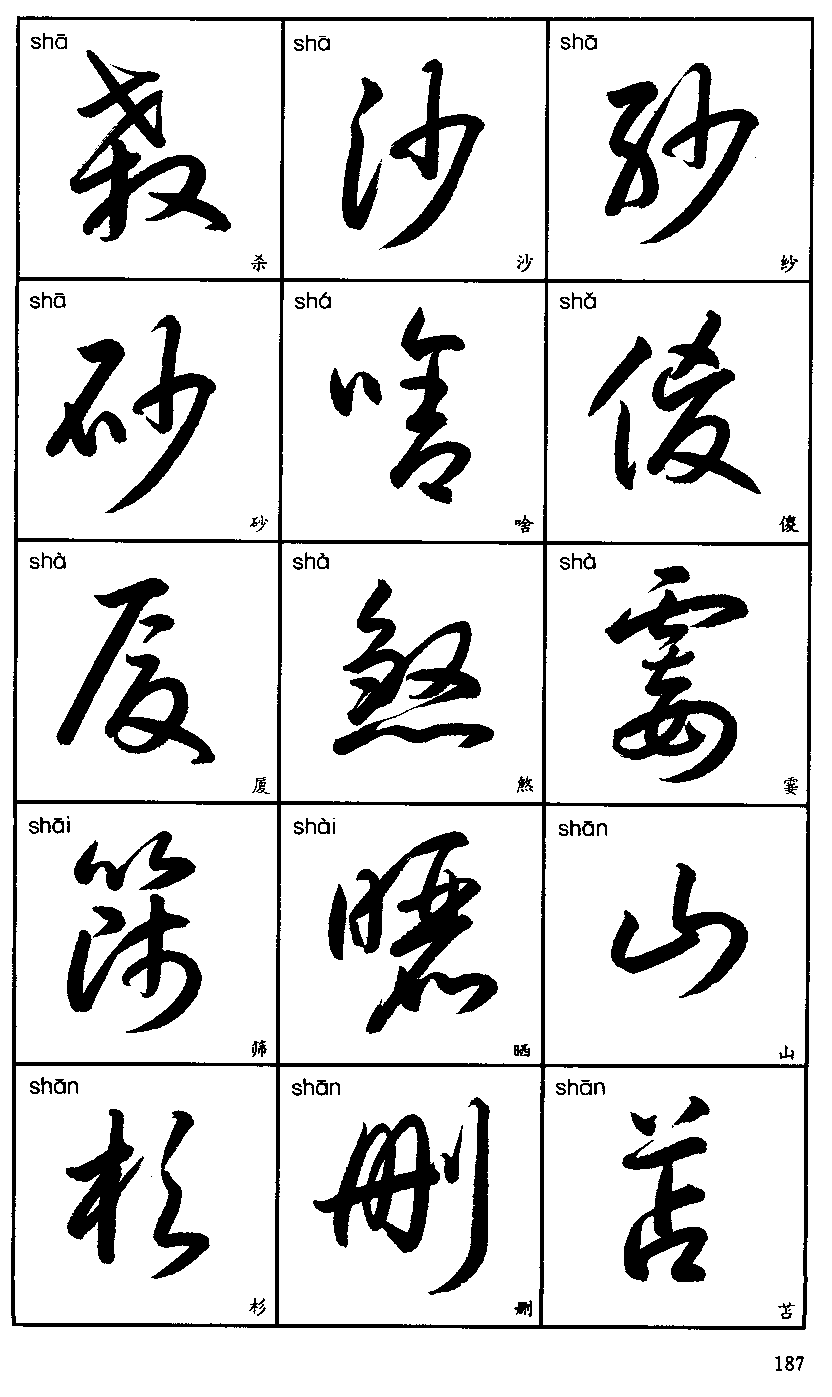 shā shā shā
殺 沙 紗
杀 沙 纱
shā shá shǎ
砂 啥 傻
砂 啥 傻
shà shà shà
厦 煞 霎
厦 煞 霎
shāi shài shān
篩 曬 山
筛 晒 山
shān shān shān
杉 刪 苫
杉 删 苫
187